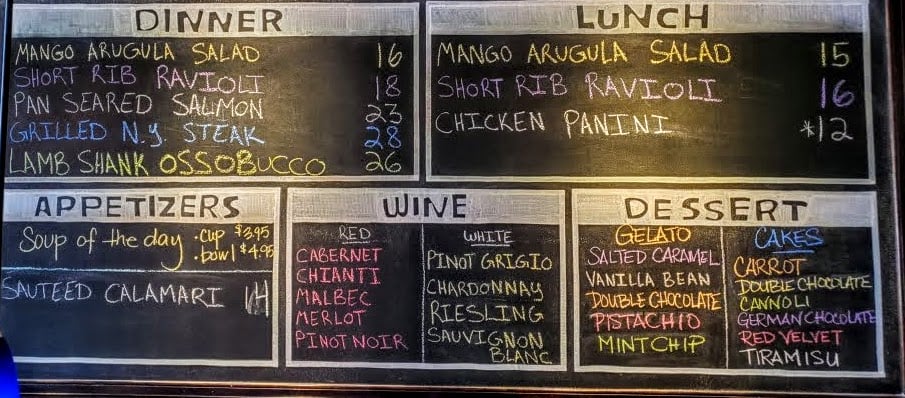 DINNER
MANGO ARUGULA SALAD 16
SHORT RIB RAVIOLI 18
PAN SEARED SALMON 23
GRILLED N.Y. STEAK 28
LAMB SHANK OSSOBUCCO 26
LUNCH
MANGO ARUGULA SALAD 15
SHORT RIB RAVIOLI 16
CHICKEN PANINI *12
APPETIZERS
Soup of the day .cup $3.95
.bowl $4.95
SAUTEED CALAMARI 14
WINE
RED
CABERNET
CHIANTI
MALBEC
MERLOT
PINOT NOIR
WHITE
PINOT GRIGIO
CHARDONNAY
RIESLING
SAUVIGNON
BLANC
DESSERT
GELATO
SALTED CARAMEL
VANILLA BEAN
DOUBLE CHOCOLATE
PISTACHIO
MINT CHIP
CAKES
CARROT
DOUBLE CHOCOLATE
CANNOLI
GERMAN CHOCOLATE
RED VELVET
TIRAMISU